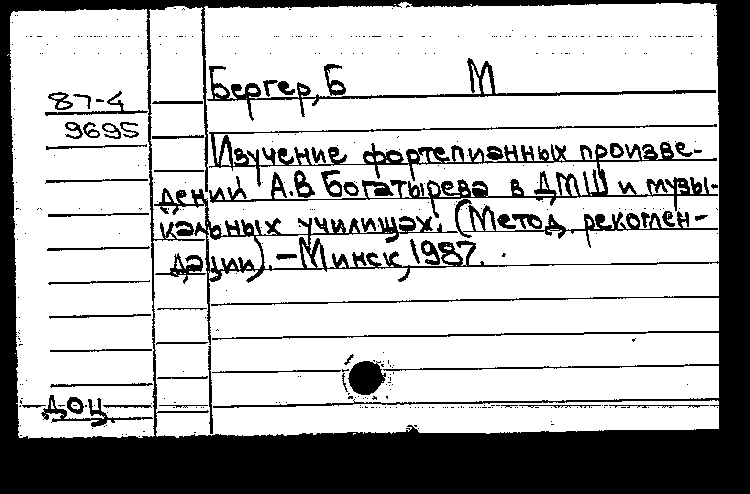 Бергер, Б М
87-4
9695
Изучение фортепианных произве-
дений А.В. Богатырева в ДМШ и музы-
кальных училищах: (Метод. рекомен-
дации). - Минск, 1987.
ДОЦ.